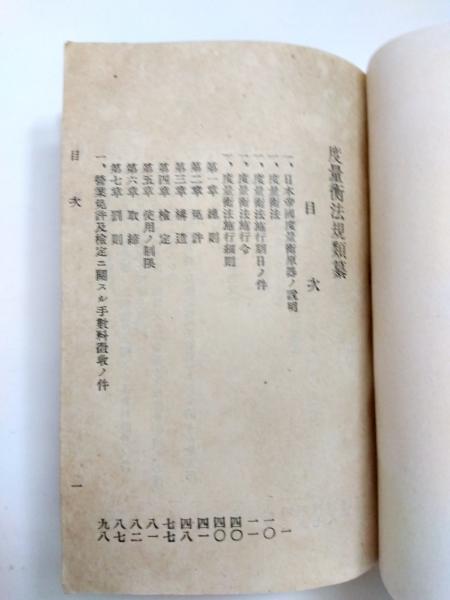 度量衡法規類纂
目次
一、日本帝國度量衡原器ノ說明 一
一、度量衡法 一〇
一、度量衡法施行期日ノ件 一一
一、度量衡法施行令 一一
一、度量衡法施行細則 四〇
第一章 總則 四〇
第二章 免許 四一
第三章 構造 四八
第四章 檢定 七七
第五章 使用ノ制限 八一
第六章 取締 八二
第七章 罰則 八七
一、營業免許及檢定ニ關スル手數料徵收ノ件 九八
目次 一